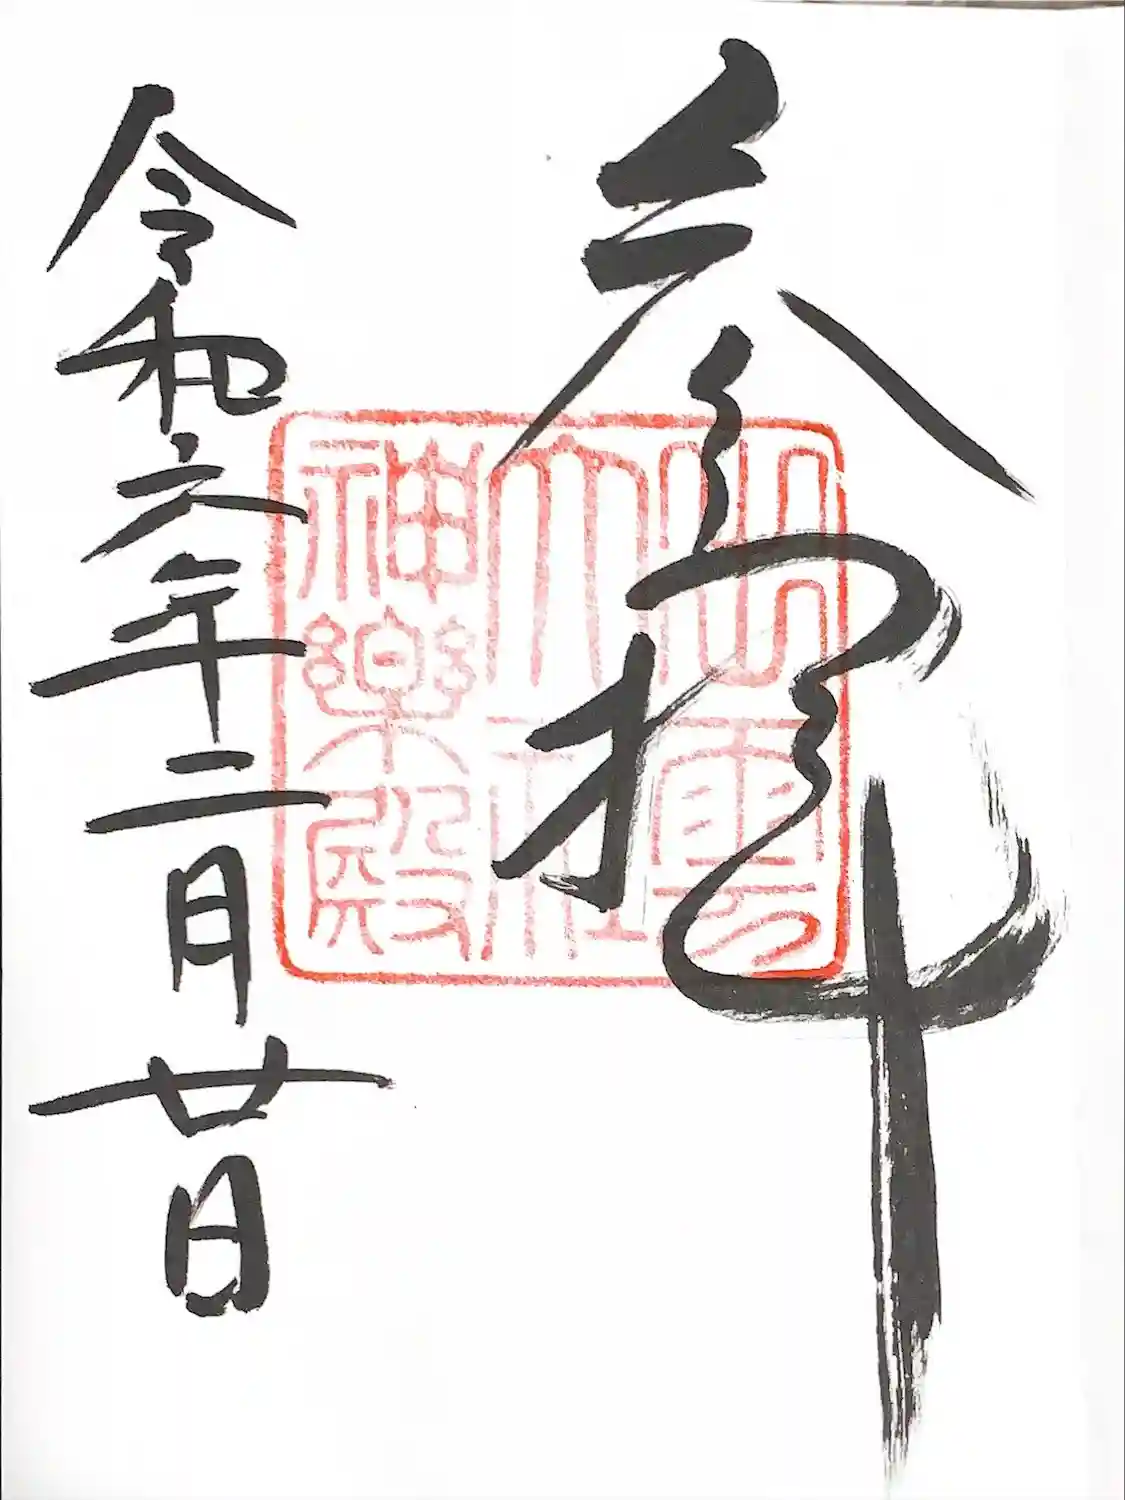 参拝
出雲
大社
神楽殿
令和六年十二月廿日